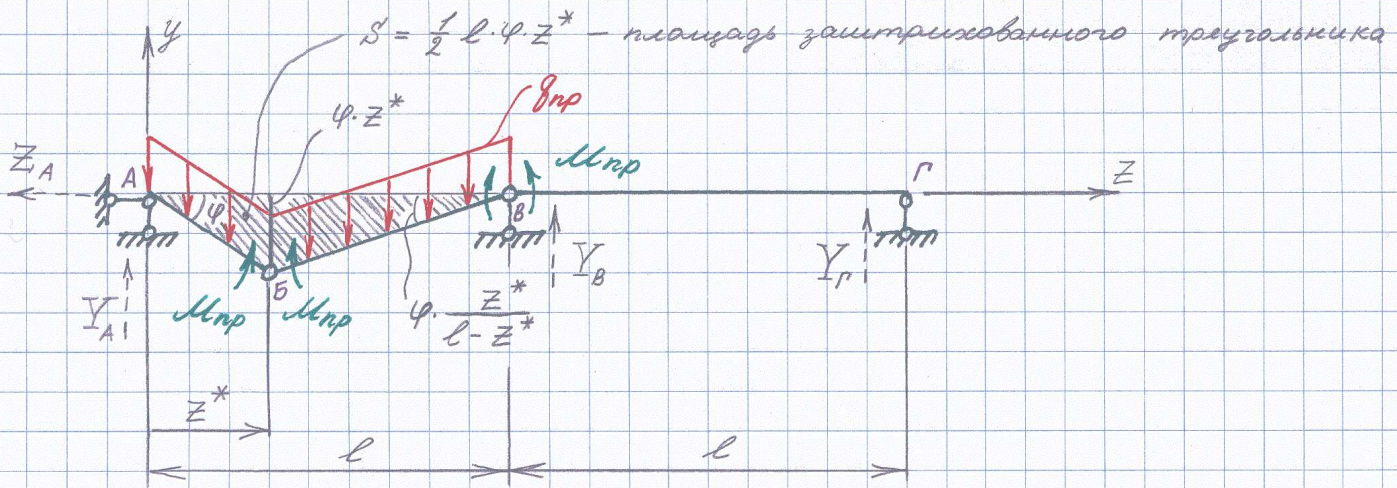 y
S = 1/2 l·φ·z* – площадь заштрихованного треугольника
φ·z*
qпр
Mпр
ZA
А
φ
В
Г
Z
Б
YA
Mпр
Mпр
φ· z*/(l-z*)
YВ
YГ
z*
l
l